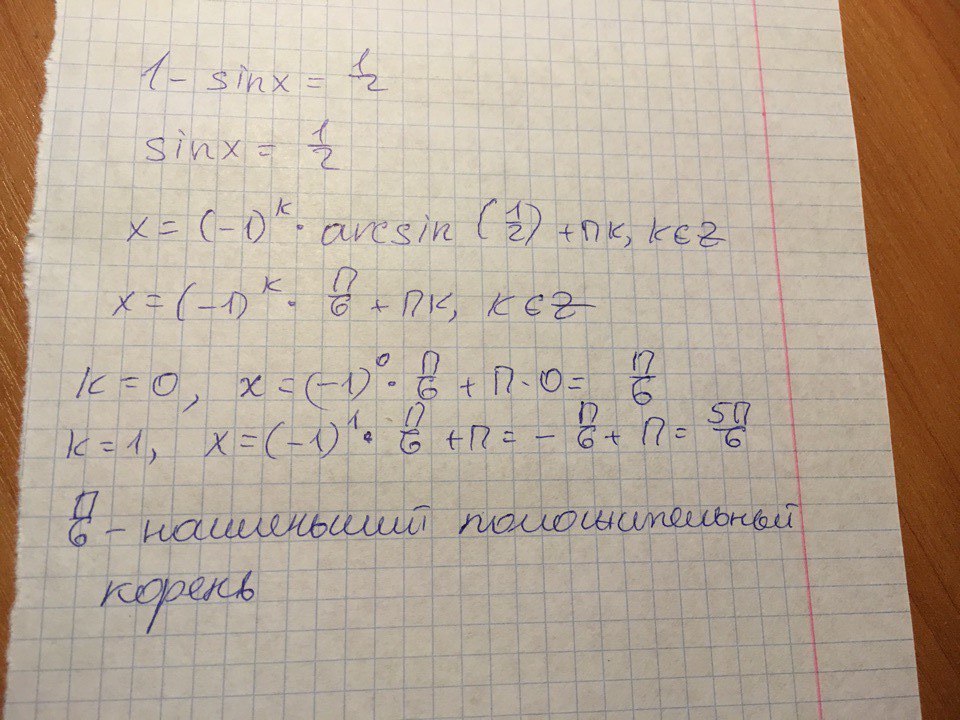 1 - sinx = 1/2
sinx = 1/2
x = (-1)^k · arcsin (1/2) + πk, k ∈ Z
x = (-1)^k · π/6 + πk, k ∈ Z
k = 0, x = (-1)^0 · π/6 + π · 0 = π/6
k = 1, x = (-1)^1 · π/6 + π = - π/6 + π = 5π/6
π/6 - наименьший положительный
корень